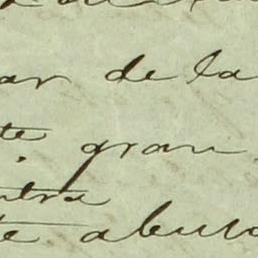 ar de la
te gran
ntra
te abus